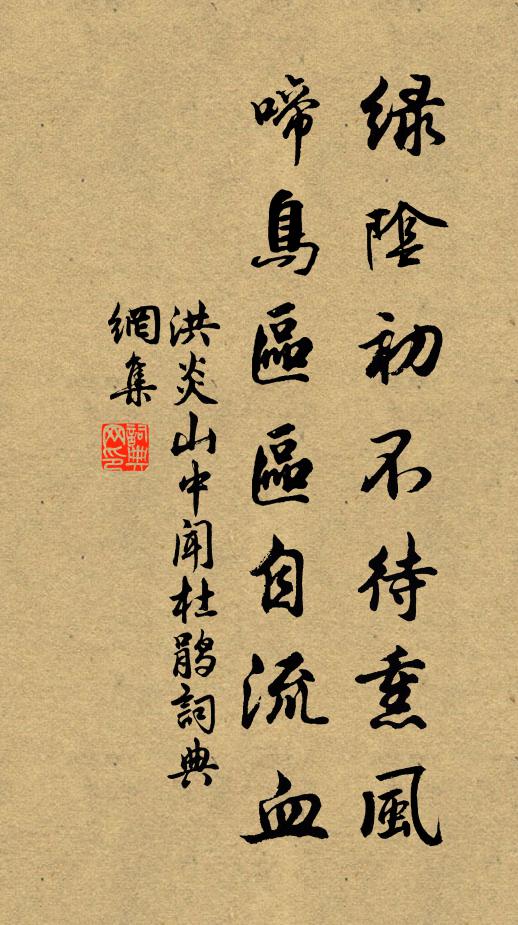 绿陰初不待熏風
啼鳥區區自流血
洪炎山中闻杜鹃詞典
網集
詞典网印